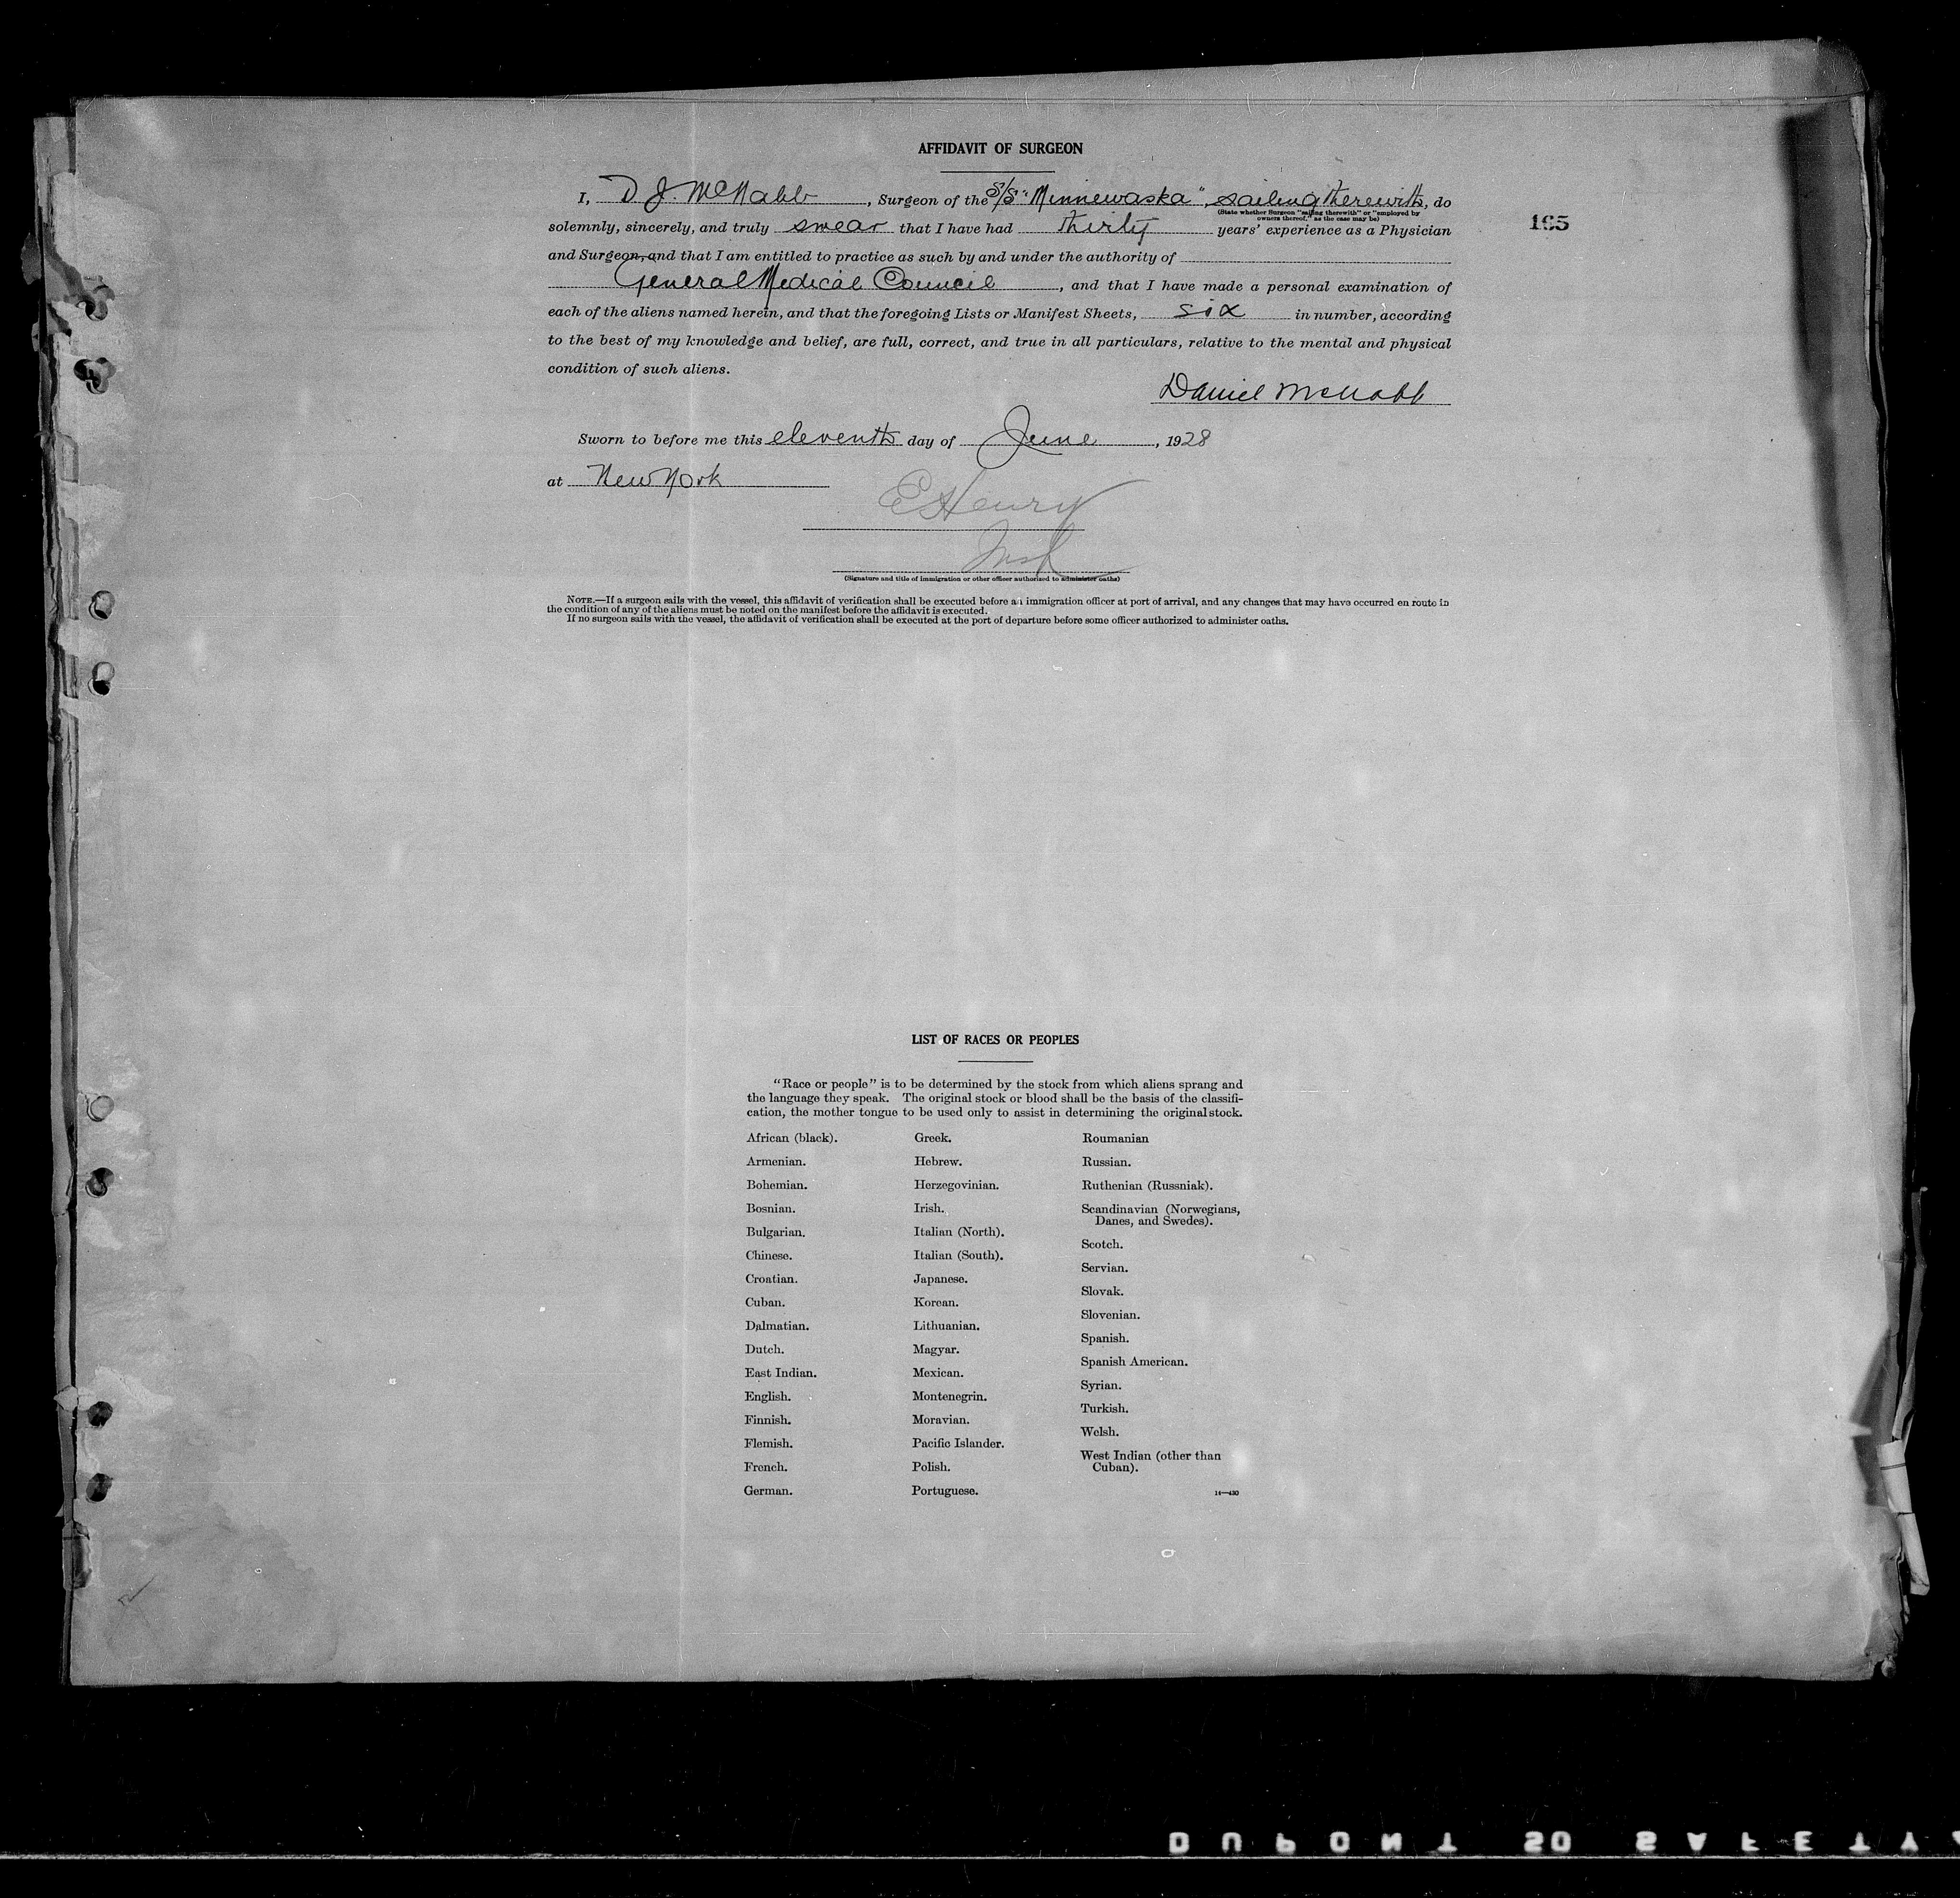 AFFIDAVIT OF SURGEON
I, D J. McNabb, Surgeon of the S/S "Minnewaska", sailing therewith, do
(State whether Surgeon "sailing therewith" or "employed by
owners thereof," as the case may be)
165
solemnly, sincerely, and truly swear that I have had thirty years' experience as a Physician
and Surgeon, and that I am entitled to practice as such by and under the authority of
General Medical Council, and that I have made a personal examination of
each of the aliens named herein, and that the foregoing Lists or Manifest Sheets, six in number, according
to the best of my knowledge and belief, are full, correct, and true in all particulars, relative to the mental and physical
condition of such aliens.
Daniel McNabb
Sworn to before me this eleventh day of June, 1928
at New York
E Henry
Insp
(Signature and title of immigration or other officer authorized to administer oaths)
NOTE.—If a surgeon sails with the vessel, this affidavit of verification shall be executed before an immigration officer at port of arrival, and any changes that may have occurred en route in
the condition of any of the aliens must be noted on the manifest before the affidavit is executed.
If no surgeon sails with the vessel, the affidavit of verification shall be executed at the port of departure before some officer authorized to administer oaths.
LIST OF RACES OR PEOPLES
"Race or people" is to be determined by the stock from which aliens sprang and
the language they speak. The original stock or blood shall be the basis of the classifi-
cation, the mother tongue to be used only to assist in determining the original stock.
African (black).
Armenian.
Bohemian.
Bosnian.
Bulgarian.
Chinese.
Croatian.
Cuban.
Dalmatian.
Dutch.
East Indian.
English.
Finnish.
Flemish.
French.
German.
Greek.
Hebrew.
Herzegovinian.
Irish.
Italian (North).
Italian (South).
Japanese.
Korean.
Lithuanian.
Magyar.
Mexican.
Montenegrin.
Moravian.
Pacific Islander.
Polish.
Portuguese.
Roumanian
Russian.
Ruthenian (Russniak).
Scandinavian (Norwegians,
Danes, and Swedes).
Scotch.
Servian.
Slovak.
Slovenian.
Spanish.
Spanish American.
Syrian.
Turkish.
Welsh.
West Indian (other than
Cuban).
14—430
DUPONT SO SAFETY